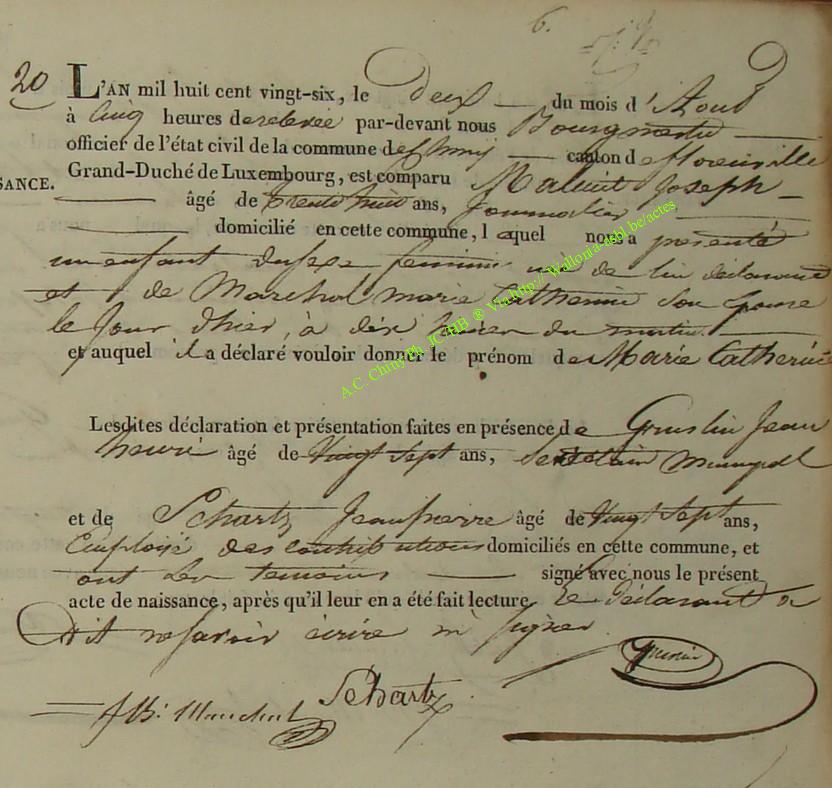 6.
20 L'AN mil huit cent vingt-six, le Deux du mois d'Aout
à Cinq heures de relevée par-devant nous Bourgmestre
officier de l'état civil de la commune de Chiny canton de florenville
SANCE. Grand-Duché de Luxembourg, est comparu Joseph
âgé de trente huit ans, Journalier
domicilié en cette commune, lequel nous a presenté
un enfant du sexe feminin né de lui déclarant
et de Marechal marie Catherine Son Epouse
le Jour d'hier, à dix heures du matin
et auquel il a déclaré vouloir donner le prénom de Marie Catherine
Lesdites déclaration et présentation faites en présence de Jean
henri âgé de Vingt Sept ans, Secretaire
et de Schartz Jean pierre âgé de Vingt Sept ans,
Employé des contributions domiciliés en cette commune, et
ont Les temoins signé avec nous le présent
acte de naissance, après qu'il leur en a été fait lecture Le Déclarant a
Dit ne savoir écrire ni signer
Schartz
A.C. Chiny Ph. JC HB ® Via http:// Wallonia-asbl.be/actes